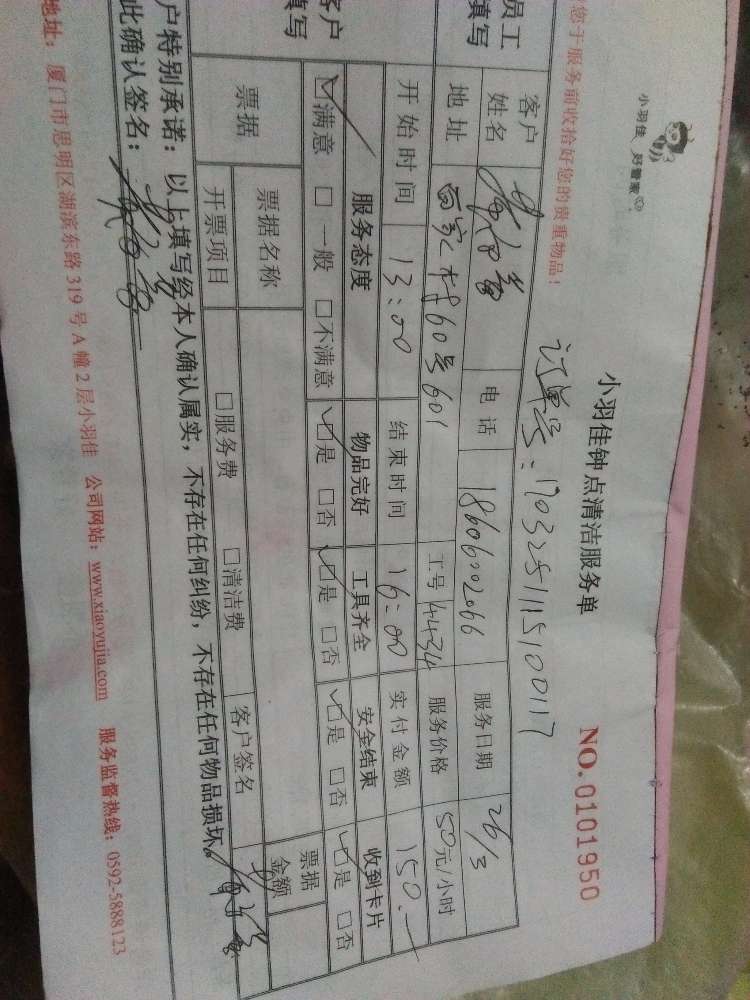 小羽佳 好管家
小羽佳钟点清洁服务单
NO. 0101950
您于服务前收拾好您的贵重物品!
订单号: 1703251115100117
员工
填写
客户
姓名
电话 18606002066 服务日期 26/3
地址 60号601 工号 4434 服务价格 50元/小时
开始时间 13:00 结束时间 16:00 实付金额 150.—
客户
填写
服务态度 物品完好 工具齐全 安全结束 收到卡片
☑满意 □一般 □不满意 ☑是 □否 ☑是 □否 ☑是 □否 ☑是 □否
票据 票据名称 票据
金额
开票项目 □服务费 □清洁费 客户签名
户特别承诺: 以上填写经本人确认属实, 不存在任何纠纷, 不存在任何物品损坏。
此确认签名:
地址: 厦门市思明区湖滨东路319号A幢2层小羽佳 公司网站: www.xiaoyujia.com 服务监督热线: 0592-5888123